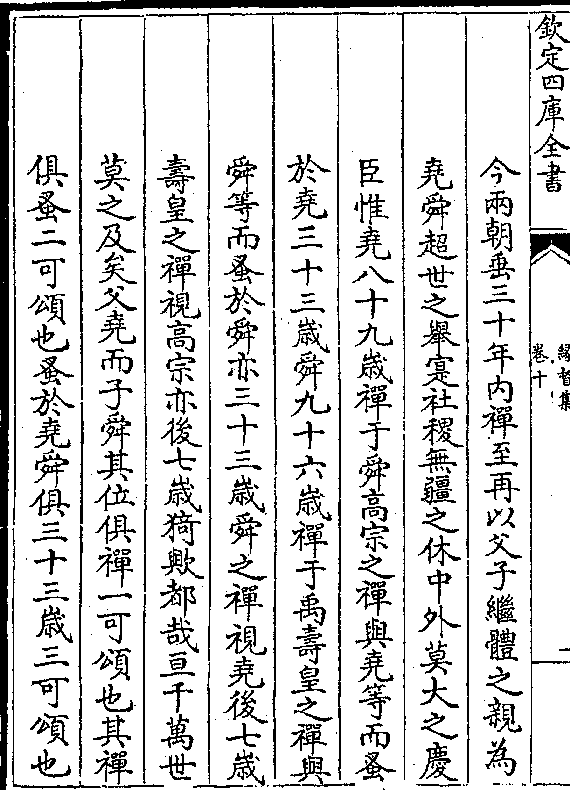 欽定四庫全書
縁督集
卷十
一
今兩朝垂三十年内禪至再以父子繼體之親為
堯舜超世之舉寔社稷無疆之休中外莫大之慶
臣惟堯八十九歳禪于舜高宗之禪與堯等而蚤
於堯三十三歳舜九十六歳禪于禹壽皇之禪與
舜等而蚤於舜亦三十三歳舜之禪視堯後七歳
壽皇之禪視高宗亦後七歳猗歟都哉亘千萬世
莫之及矣父堯而子舜其位俱禪一可頌也其禪
俱蚤二可頌也蚤於堯舜俱三十三歳三可頌也